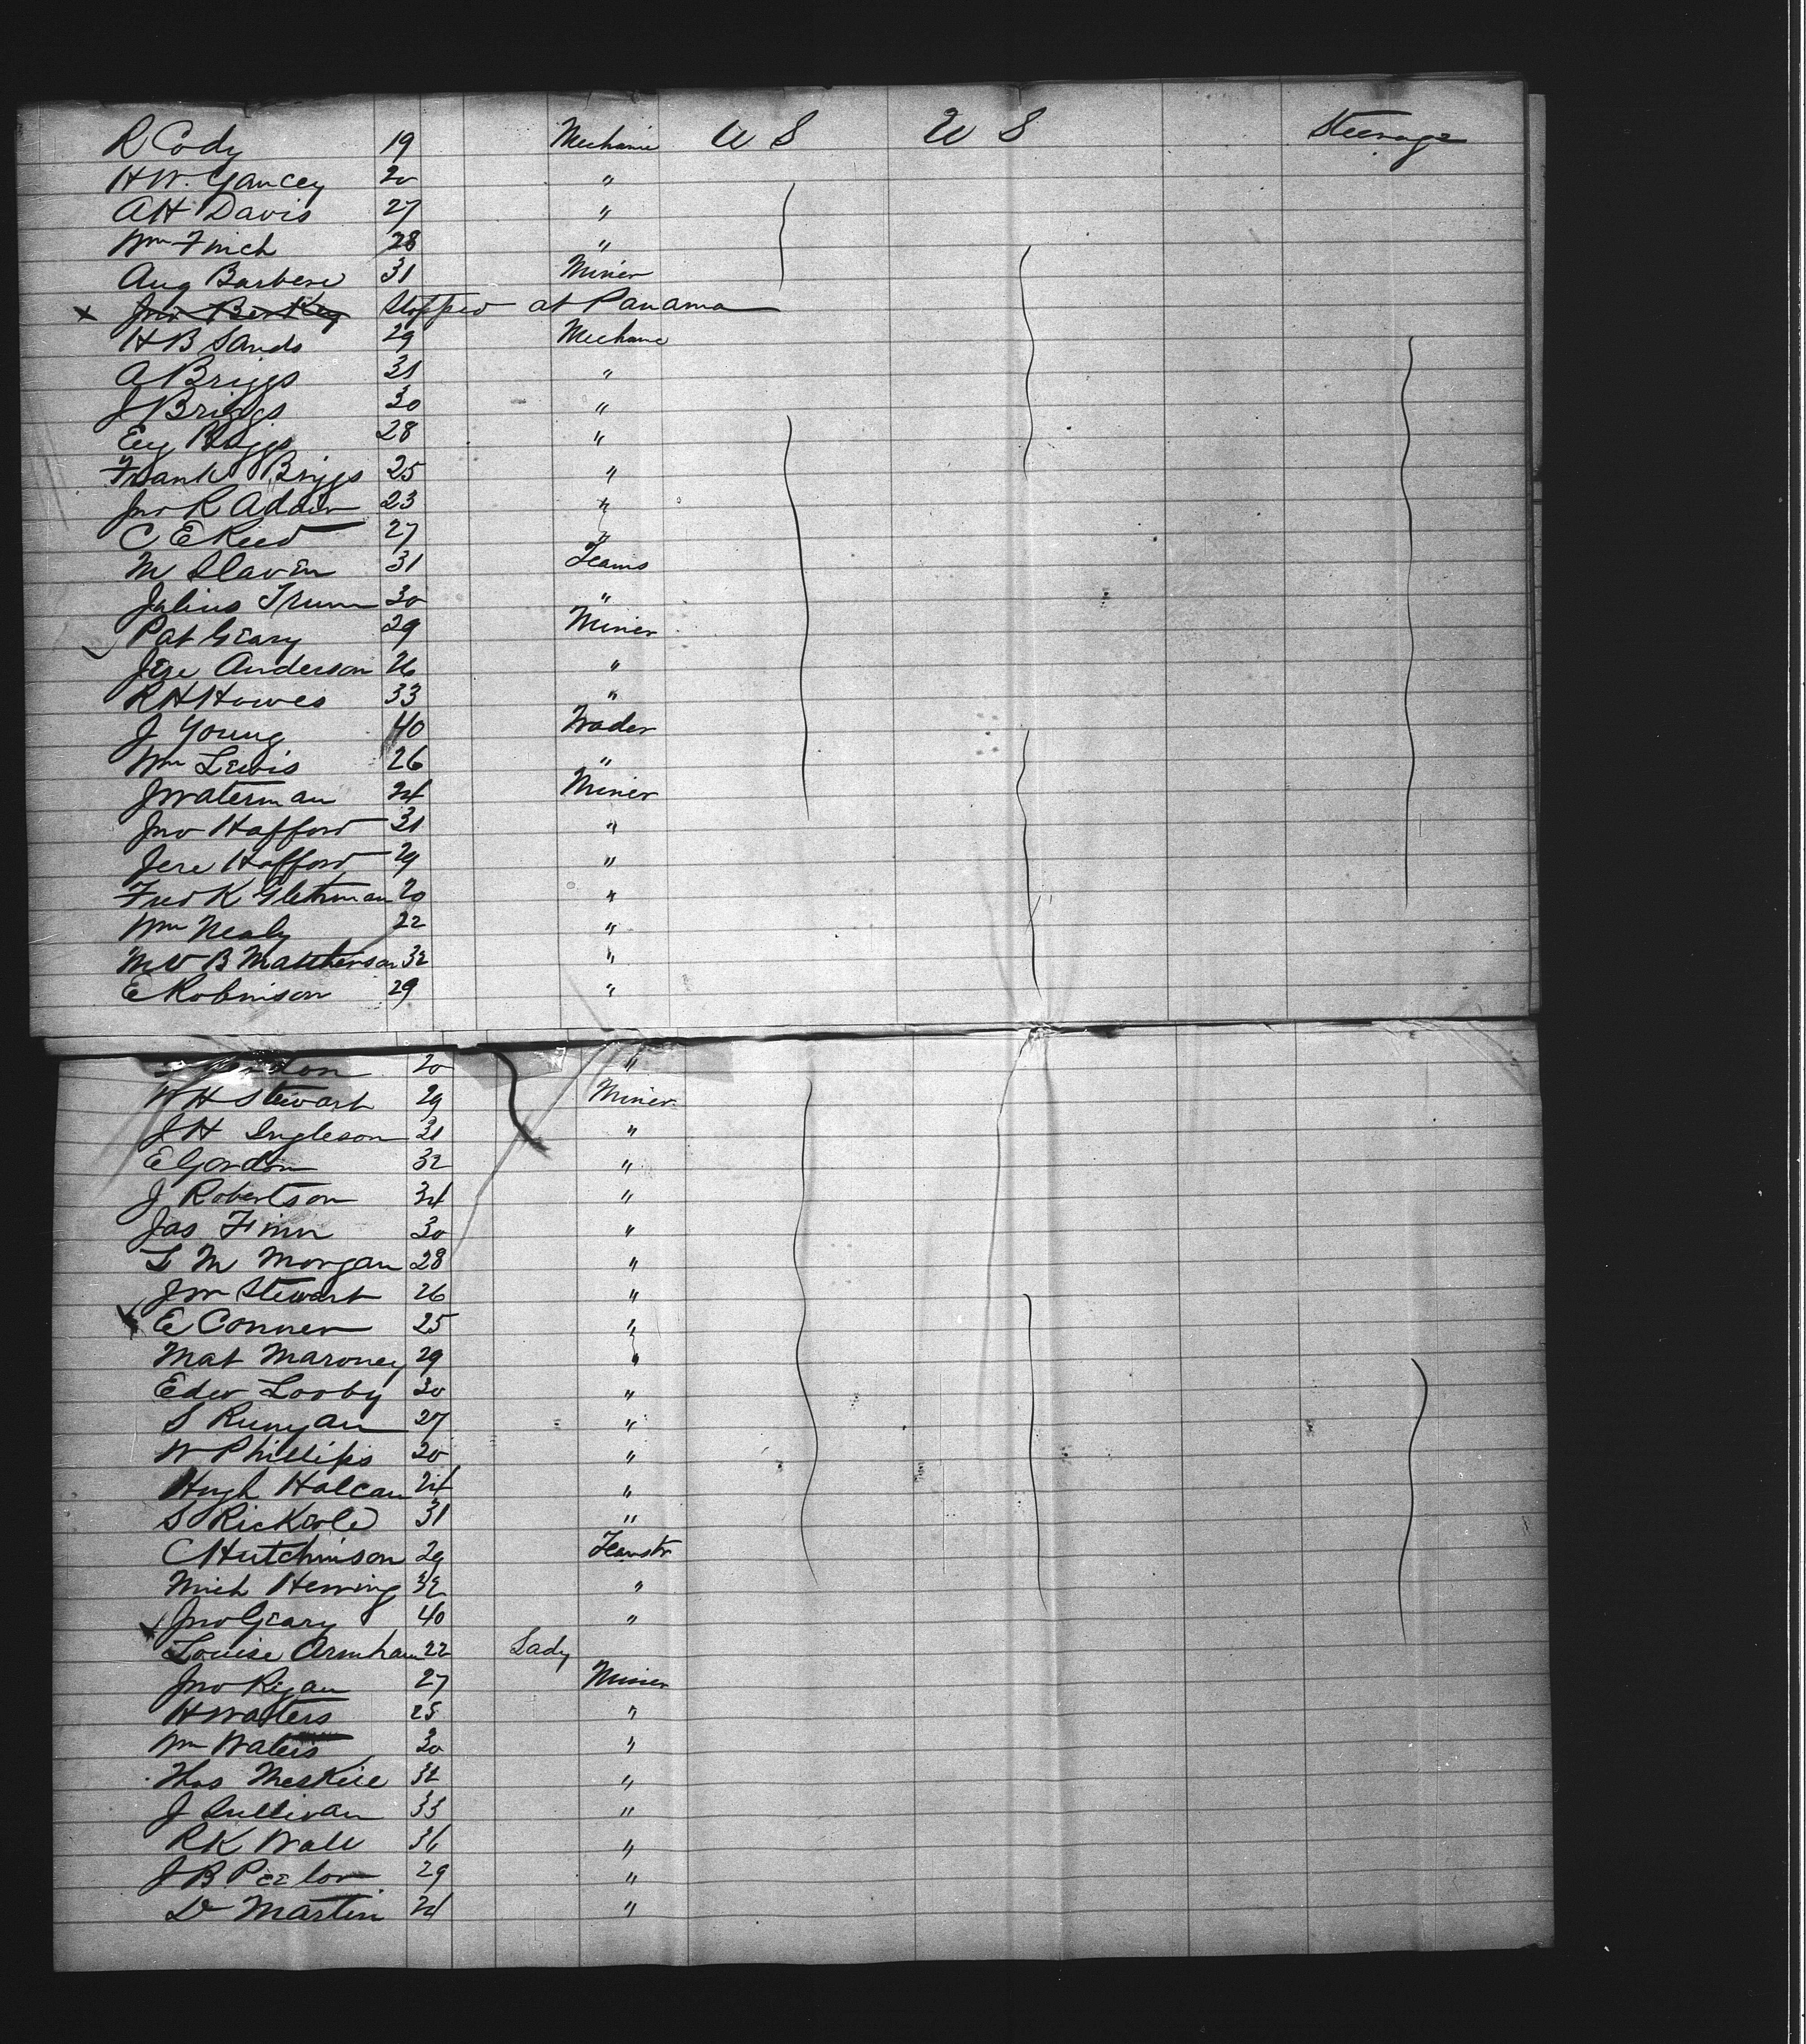 R Cody 19 Mechanic U S U S Steerage
H W. Yancey 20 "
A H Davis 27 "
Wm Finch 28 "
Aug Barbere 31 Miner
x Jno Berkey Stopped at Panama
H B Sands 29 Mechanic
A Briggs 31 "
J Briggs 30 "
Eug Briggs 28 "
Frank Briggs 25 "
Jno R Addin 23 "
C E Reed 27 "
M Slavin 31 Teams
Julius Trum 30 "
Pat Geary 29 Miner
Jere Anderson 26 "
R H Howes 33 "
J Young 40 Trader
Wm Lewis 26 "
J Waterman 24 Miner
Jno Hafford 31 "
Jere Hafford 29 "
Fred K 20 "
Wm Nealy 22 "
M V B Matherson 32 "
E Robinson 29 "
20 "
W H Stewart 29 Miner
J H Ingleson 31 "
E Gordon 32 "
J Robertson 34 "
Jas Finn 30 "
L M Morgan 28 "
J W Stewart 26 "
E Conner 25 "
Mat Maroney 29 "
Edw Looby 30 "
S Runyan 27 "
W Phillips 20 "
Hugh Halcan 24 "
S Rickerle 31 "
C Hutchinson 29 Teamstr
Mich Herring 32 "
Jno Geary 40 "
Louise Armham 22 Lady
Jno Regan 27 Miner
H Waters 25 "
Wm Waters 30 "
Thos Meskile 32 "
J Sullivan 33 "
R K Wall 36 "
J B 29 "
D Martin 24 "